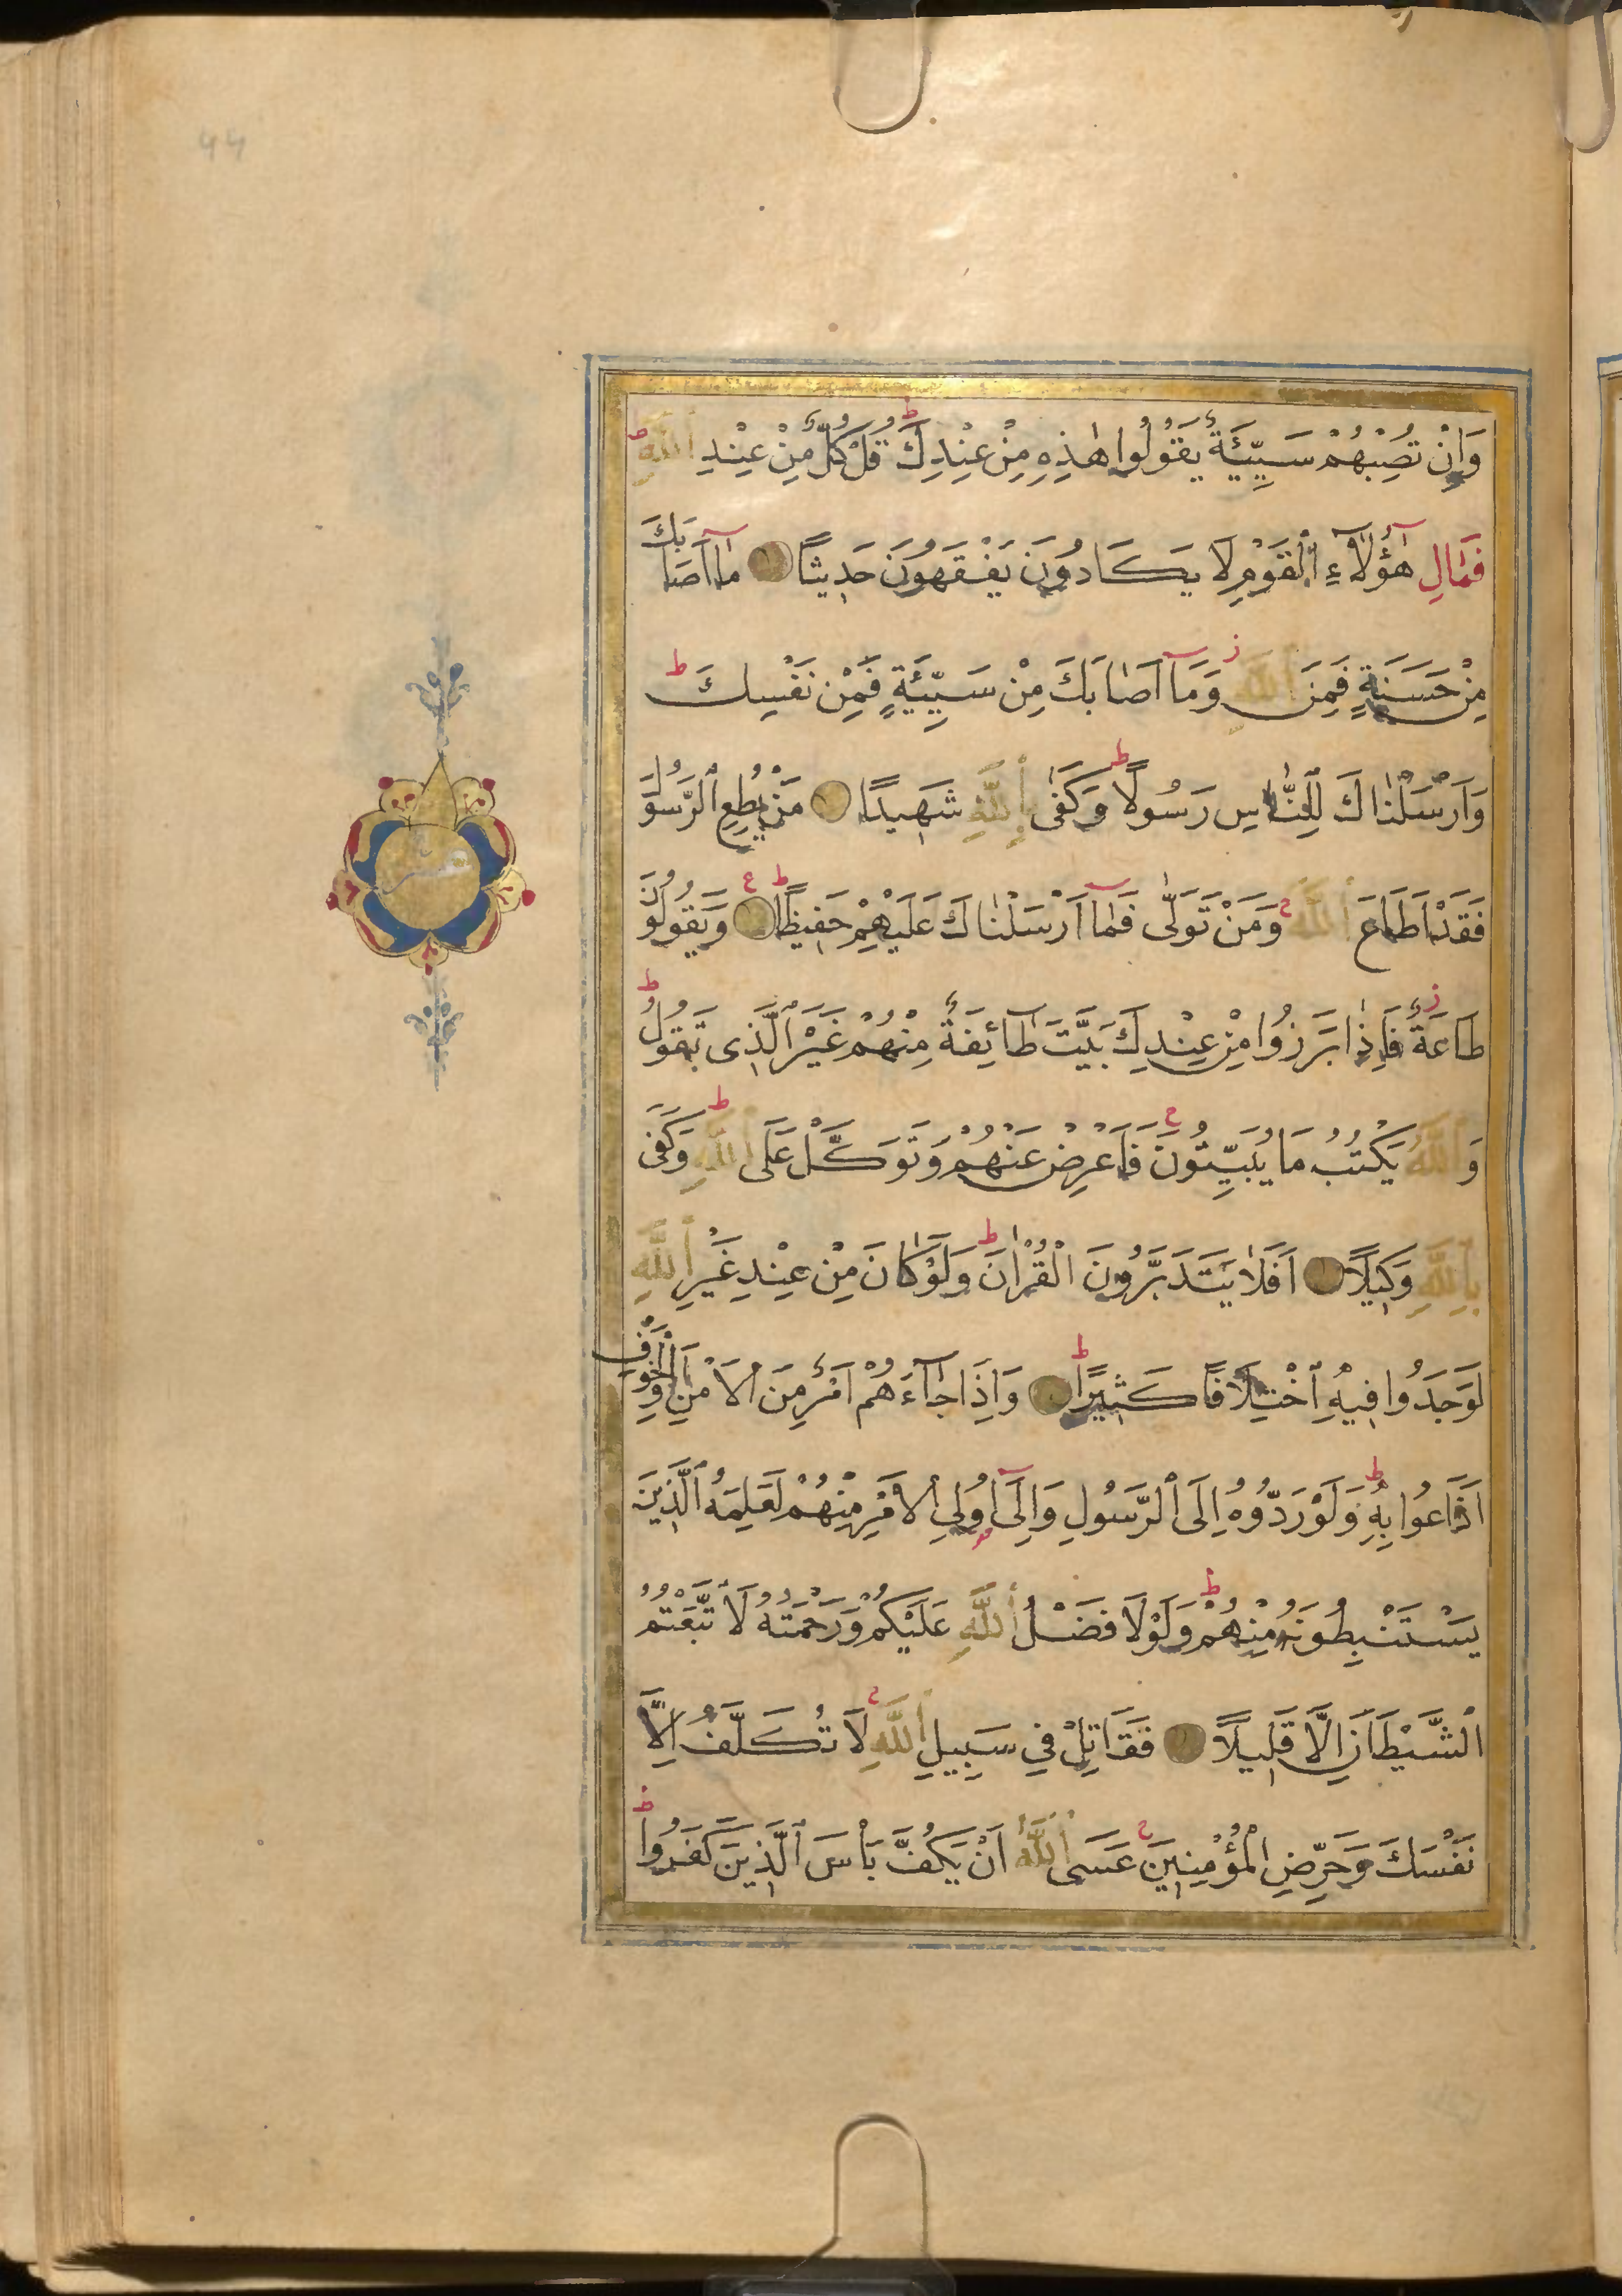 وَاِنْ تُصِبْهُمْ سَيِّئَةٌ يَقُولُوا هٰذِهِ مِنْ عِنْدِكَ ط قُلْ كُلٌّ مِنْ عِنْدِ اللّٰهِ ط
فَمَالِ هٰٓؤُلَآءِ الْقَوْمِ لَا يَكَادُونَ يَفْقَهُونَ حَدِيثًا مَآ اَصَابَكَ
مِنْ حَسَنَةٍ فَمِنَ اللّٰهِ ز وَمَآ اَصَابَكَ مِنْ سَيِّئَةٍ فَمِنْ نَفْسِكَ ط
وَاَرْسَلْنَاكَ لِلنَّاسِ رَسُولًا ط وَكَفٰى بِاللّٰهِ شَهِيدًا مَنْ يُطِعِ الرَّسُولَ
فَقَدْ اَطَاعَ اللّٰهَ ج وَمَنْ تَوَلّٰى فَمَآ اَرْسَلْنَاكَ عَلَيْهِمْ حَفِيظًا ط ع وَيَقُولُونَ
طَاعَةٌ ز فَاِذَا بَرَزُوا مِنْ عِنْدِكَ بَيَّتَ طَآئِفَةٌ مِنْهُمْ غَيْرَ الَّذِى تَقُولُ ط
وَاللّٰهُ يَكْتُبُ مَا يُبَيِّتُونَ ج فَاَعْرِضْ عَنْهُمْ وَتَوَكَّلْ عَلَى اللّٰهِ ط وَكَفٰى
بِاللّٰهِ وَكِيلًا اَفَلَا يَتَدَبَّرُونَ الْقُرْاٰنَ ط وَلَوْ كَانَ مِنْ عِنْدِ غَيْرِ اللّٰهِ
لَوَجَدُوا فِيهِ اخْتِلَافًا كَثِيرًا ط وَاِذَا جَآءَهُمْ اَمْرٌ مِنَ الْاَمْنِ اَوِ الْخَوْفِ
اَذَاعُوا بِهِ ط وَلَوْ رَدُّوهُ اِلَى الرَّسُولِ وَاِلٰٓى اُولِى الْاَمْرِ مِنْهُمْ لَعَلِمَهُ الَّذِينَ
يَسْتَنْبِطُونَهُ مِنْهُمْ ط وَلَوْلَا فَضْلُ اللّٰهِ عَلَيْكُمْ وَرَحْمَتُهُ لَاتَّبَعْتُمُ
الشَّيْطَانَ اِلَّا قَلِيلًا فَقَاتِلْ فِى سَبِيلِ اللّٰهِ ج لَا تُكَلَّفُ اِلَّا
نَفْسَكَ وَحَرِّضِ الْمُؤْمِنِينَ ج عَسَى اللّٰهُ اَنْ يَكُفَّ بَاْسَ الَّذِينَ كَفَرُوا ط